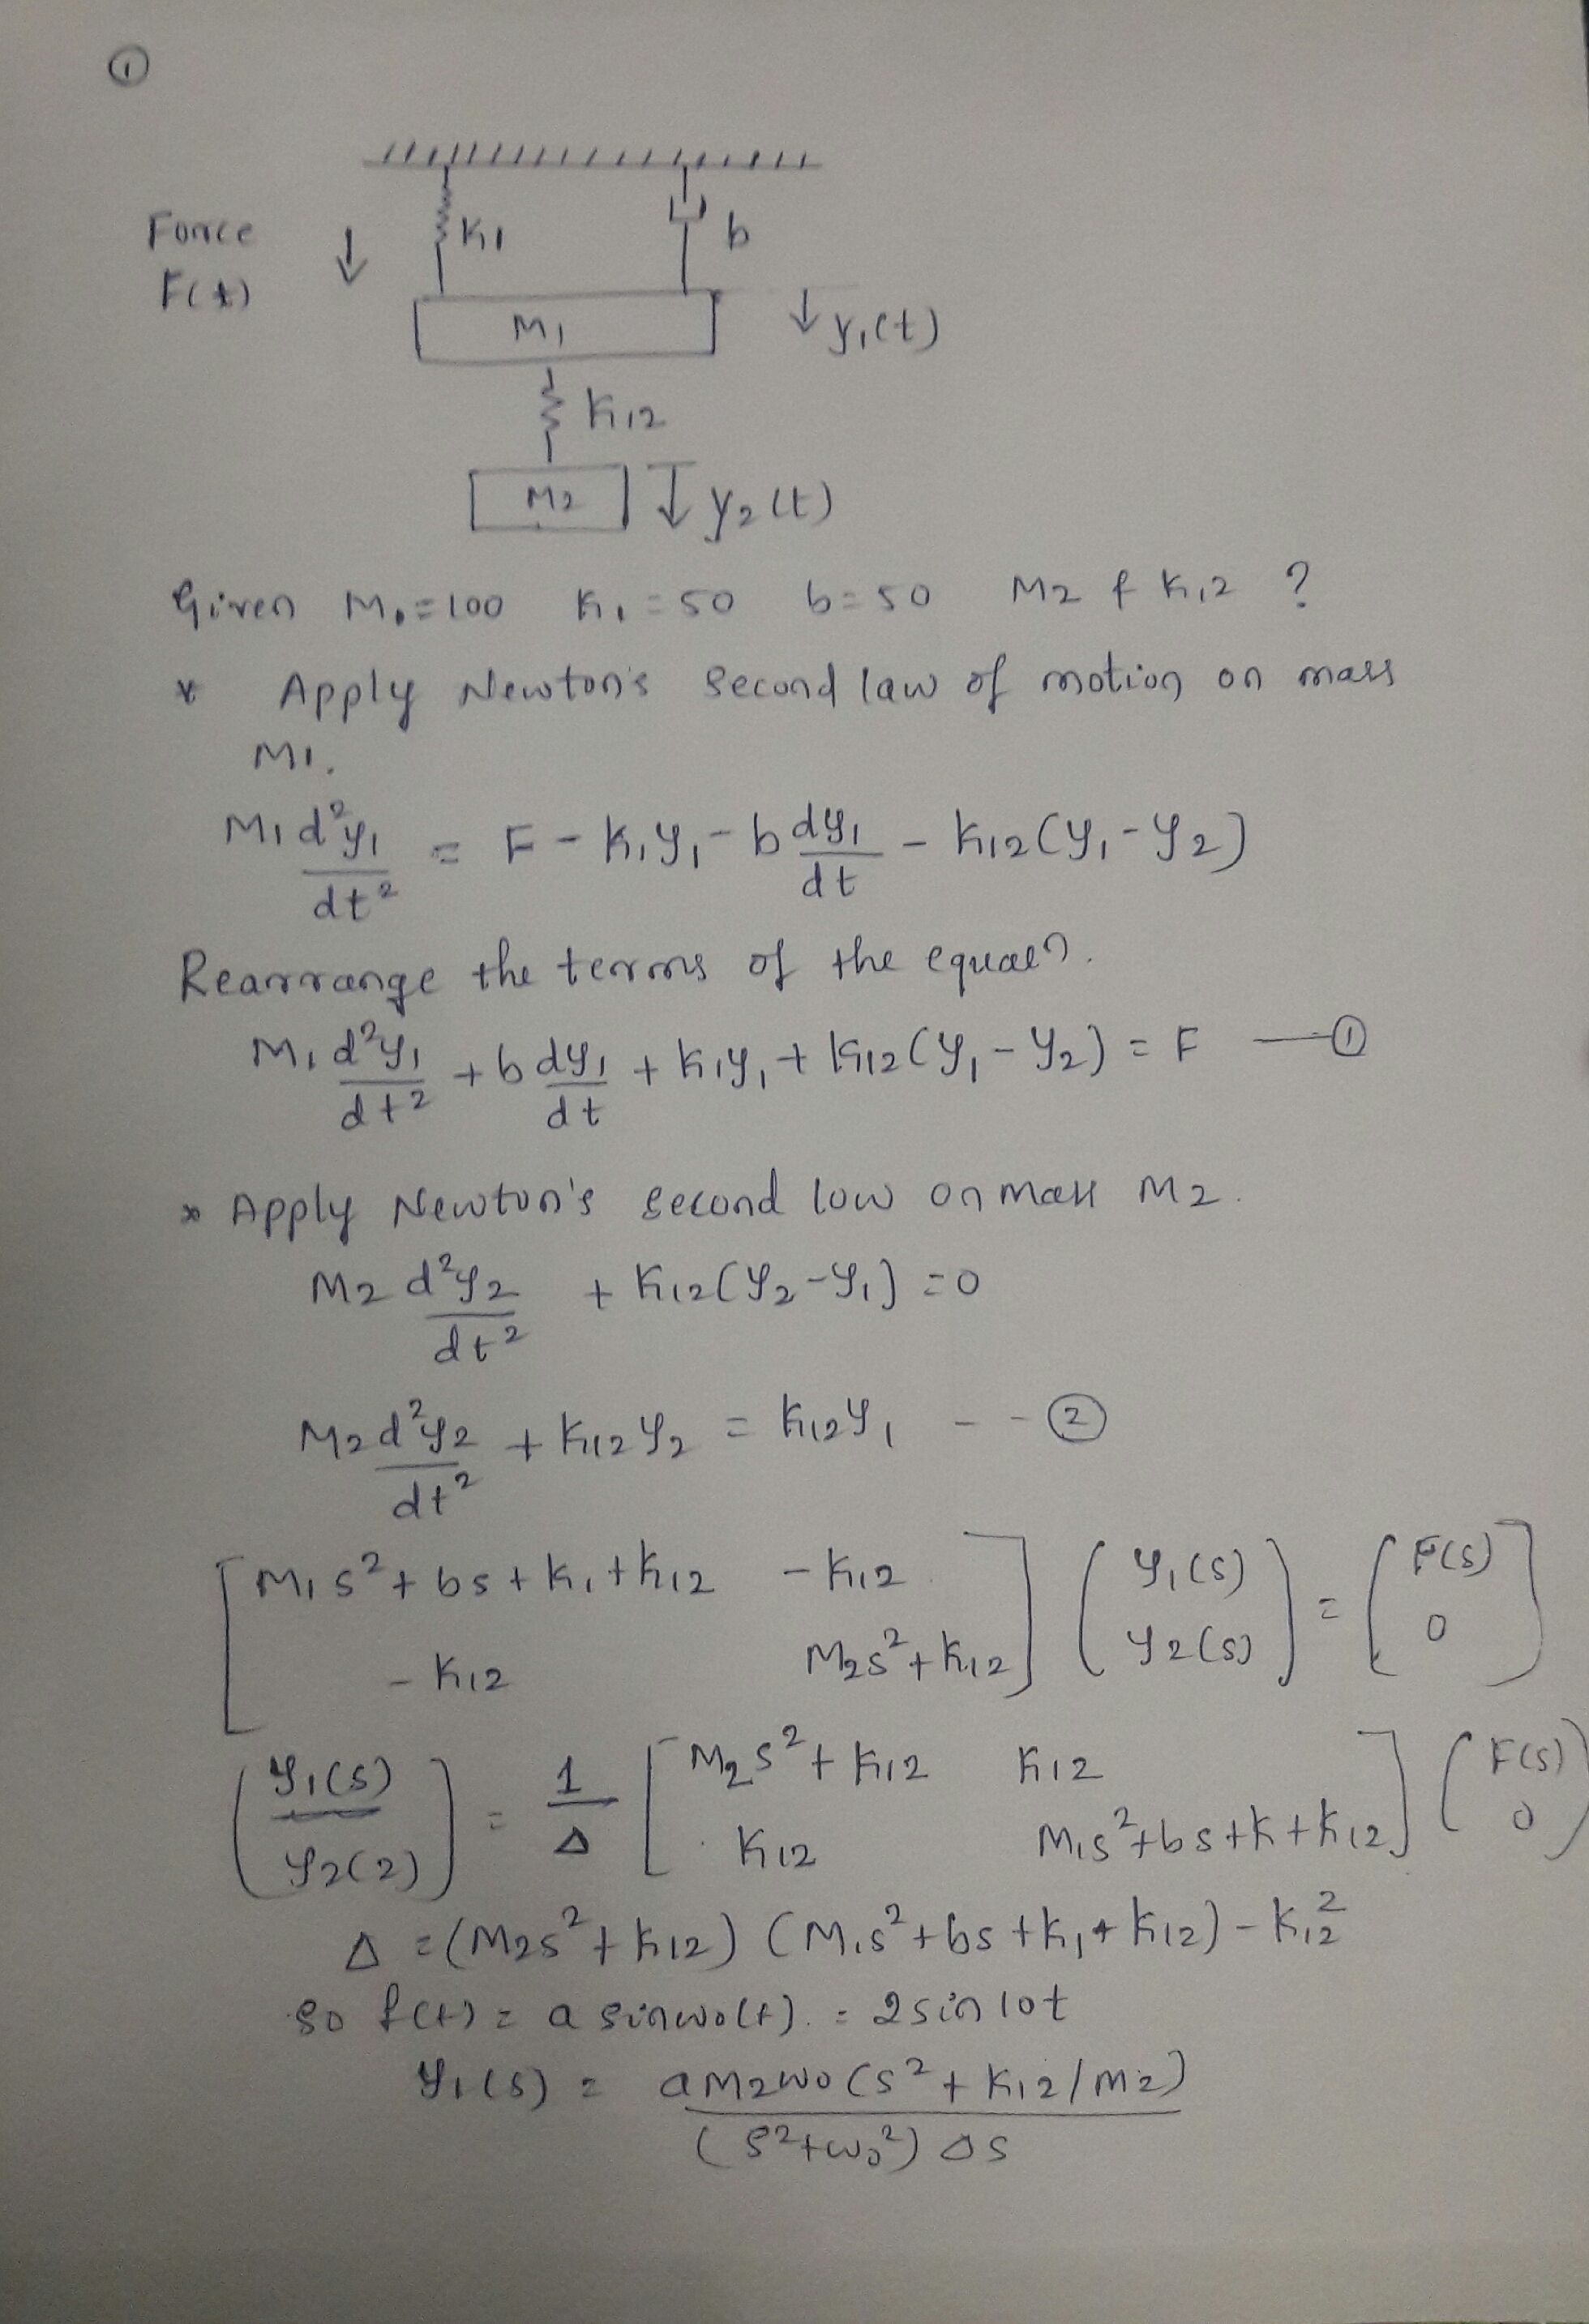 ①
Force
F(t)
K1
b
M1
y1(t)
K12
M2
y2(t)
Given M1=100 K1=50 b=50 M2 & K12 ?
* Apply Newton's Second law of motion on mass
M1.
M1 d²y1/dt² = F - K1y1 - b dy1/dt - K12(y1-y2)
Rearrange the terms of the equan.
M1 d²y1/dt² + b dy1/dt + K1y1 + K12(y1-y2) = F —①
* Apply Newton's second low on mass M2.
M2 d²y2/dt² + K12(y2-y1) = 0
M2 d²y2/dt² + K12y2 = K12y1 -- ②
[M1s²+bs+K1+K12 -K12] (y1(s)) = [F(s)]
[-K12 M2s²+K12] (y2(s)) [0]
(y1(s)) = 1/Δ [M2s²+K12 K12] (F(s))
(y2(2)) [K12 M1s²+bs+K+K12] (0)
Δ = (M2s²+K12) (M1s²+bs+K1+K12) - K12²
so f(t) = a sinwo(t). = 2sin10t
y1(s) = aM2wo(s²+K12/M2)
(s²+wo²) ΔS